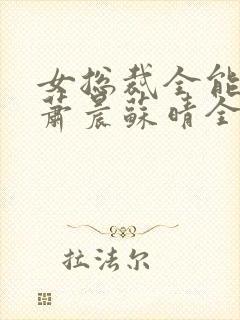 女总裁全能
萧晨苏晴全
拉法尔